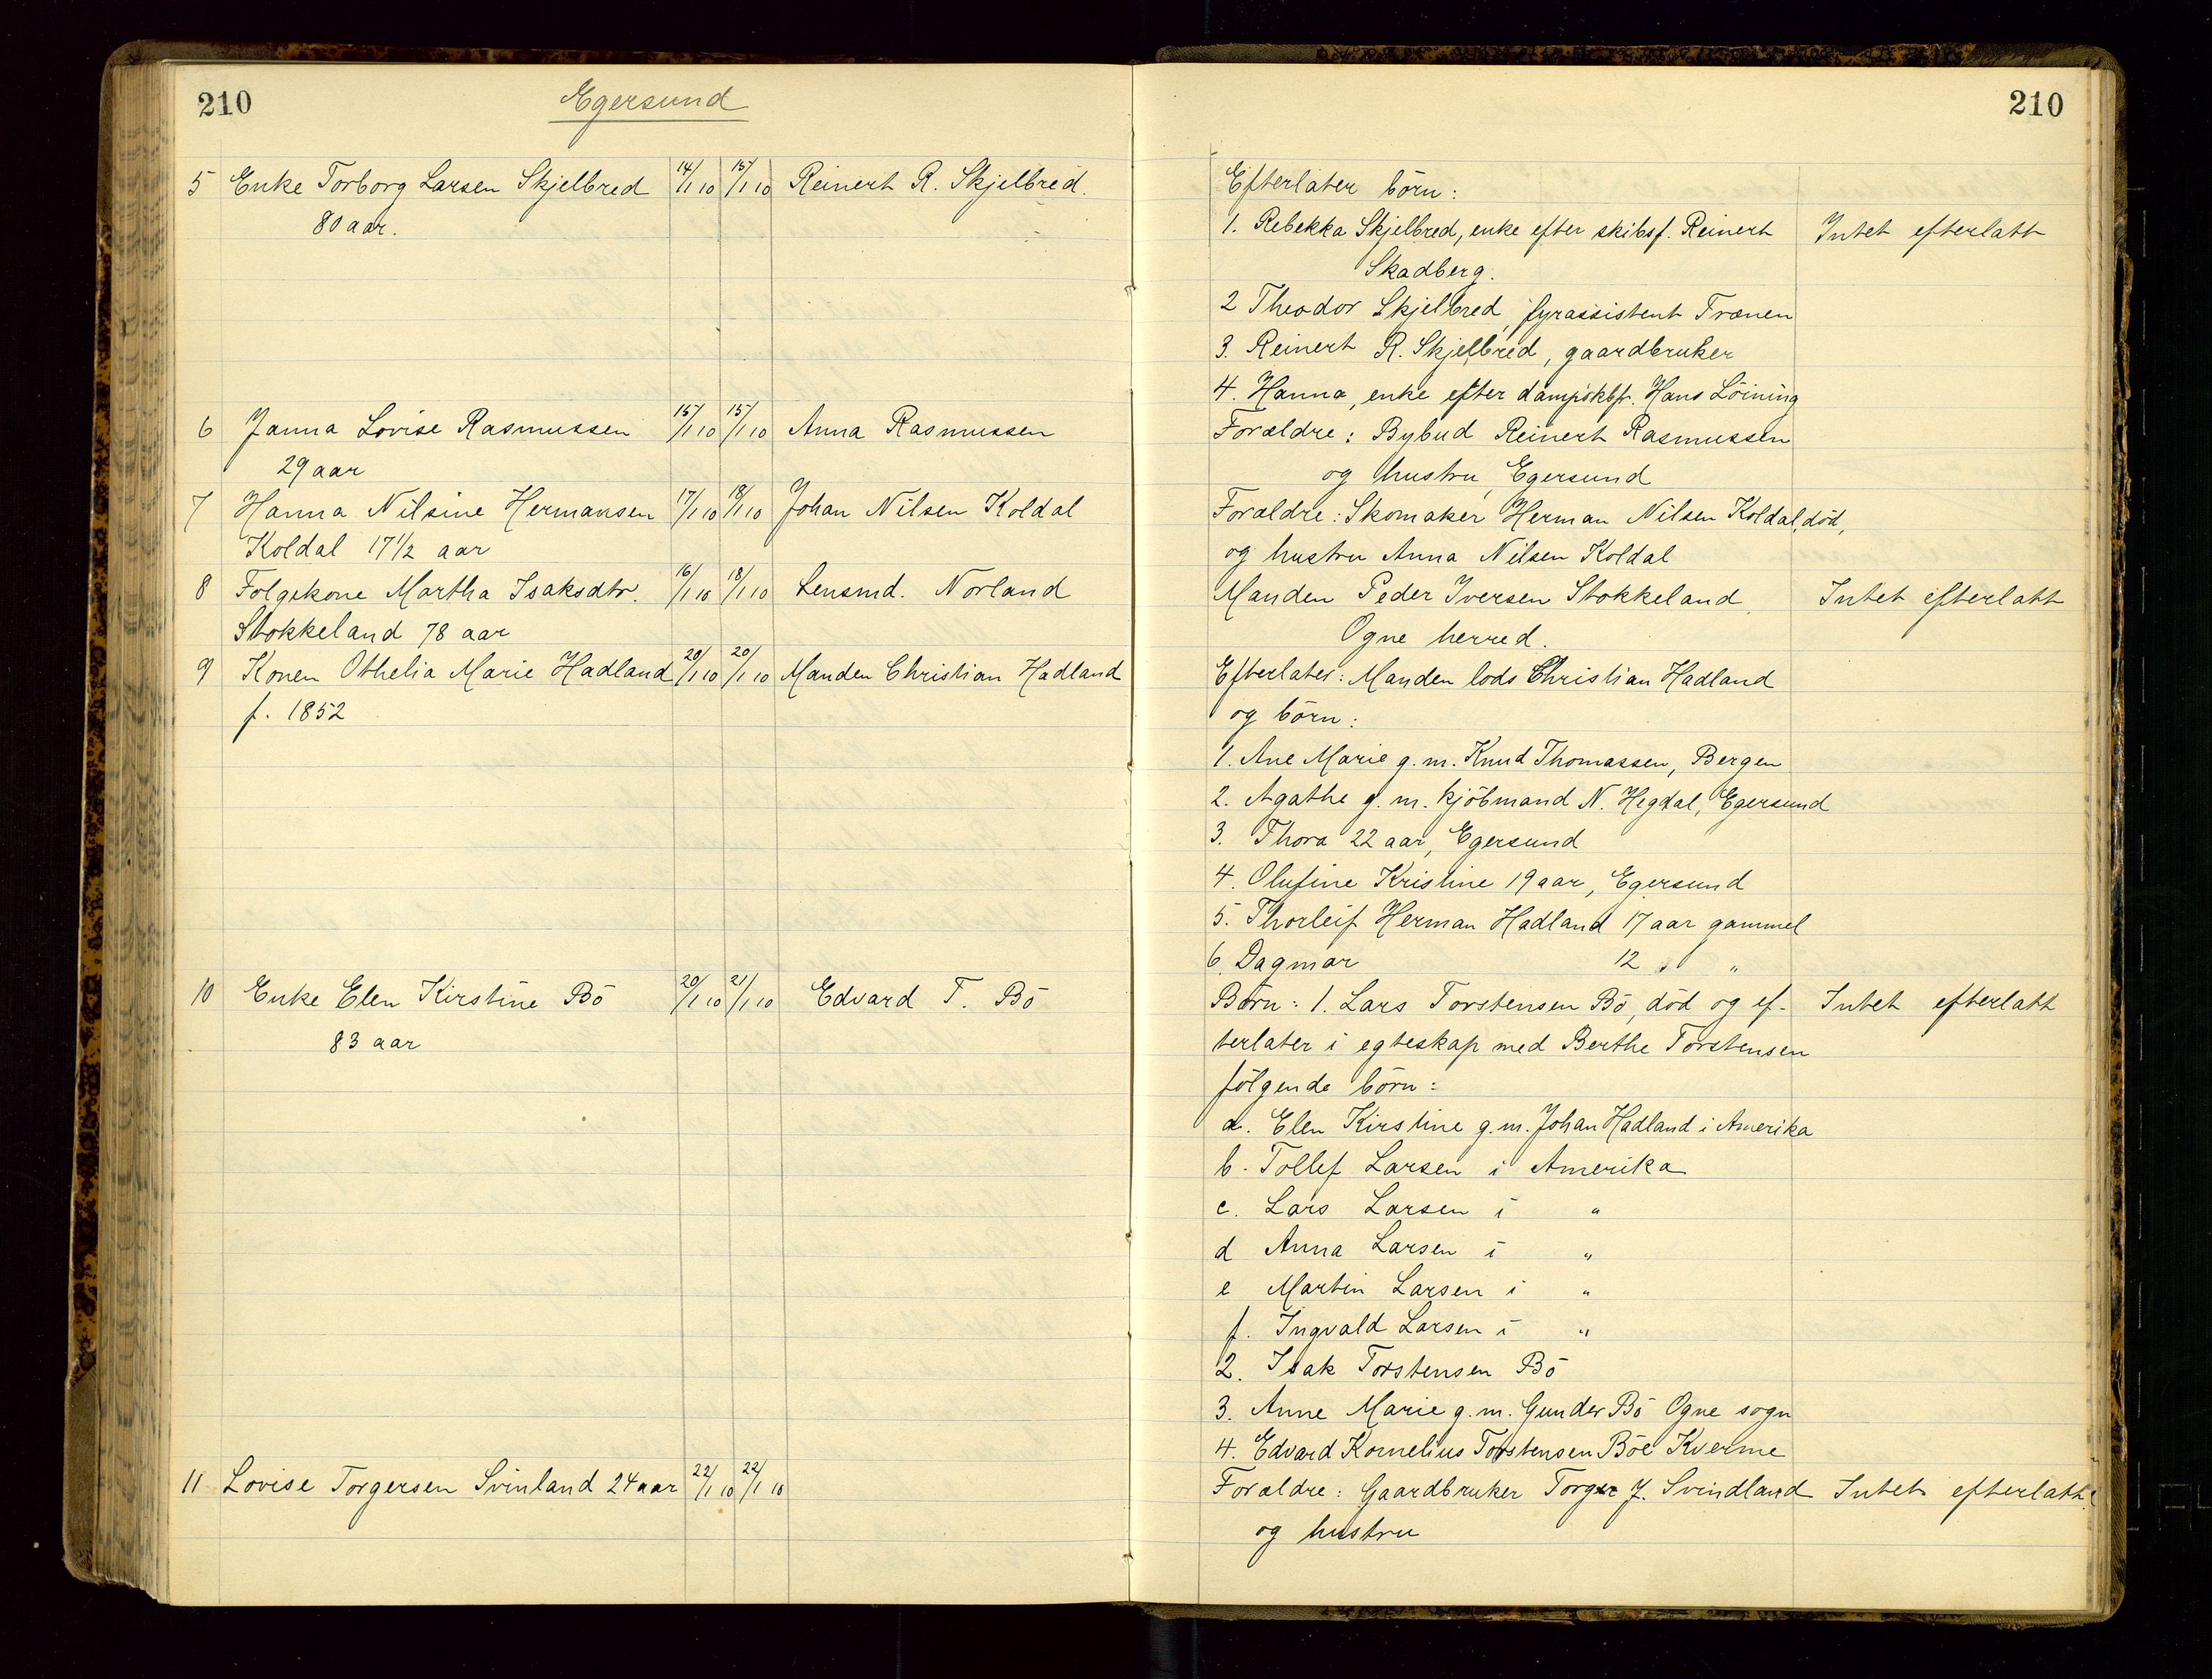 210
Egersund
5 Enke Torborg Larsen Skjelbred 14/1 10 15/1 10 Reinert R. Skjelbred.
80 aar.
6 Janna Lovise Rasmussen 15/1 10 15/1 10 Anna Rasmussen
29 aar
7 Hanna Nilsine Hermansen 17/1 10 18/1 10 Johan Nilsen Koldal
Koldal 17 1/2 aar
8 Folgekone Martha Isaksdtr. 16/1 10 18/1 10 Lensmd. Norland
Stokkeland 78 aar
9 Konen Othelia Marie Hadland 20/1 10 20/1 10 Manden Christian Hadland
f. 1852
10 Enke Elen Kirstine Bö 20/1 10 21/1 10 Edvard T. Bö
83 aar
11 Lovise Torgersen Svinland 24 aar 22/1 10 22/1 10
210
Efterlater börn:
1. Rebekka Skjelbred, enke efter skibsf. Reinert Intet efterlatt
Skadberg.
2 Theodor Skjelbred, fyrassistent Trænen
3. Reinert R. Skjelbred, gaardbruker
4. Hanna, enke efter dampskbf. Hans Löining
Forældre: Bybud Reinert Rasmussen
og hustru, Egersund
Forældre: Skomaker Herman Nilsen Koldal, död,
og hustru Anna Nilsen Koldal
Manden Peder Iversen Stokkeland, Intet efterlatt
Ogne herred.
Efterlater: Manden lods Christian Hadland
og börn:
1. Ane Marie g. m. Knud Thomassen, Bergen
2. Agathe g. m. kjöbmand N. Hegdal, Egersund
3. Thora 22 aar, Egersund
4. Olufine Kristine 19 aar, Egersund
5. Thorleif Herman Hadland 17 aar gammel
6. Dagmar 12 " "
Börn: 1. Lars Torstensen Bö, död og ef- Intet efterlatt
terlater i egteskap med Berthe Torstensen
fölgende börn:
a. Elen Kirstine g. m. Johan Hadland i Amerika
b. Tollef Larsen i Amerika
c. Lars Larsen i "
d Anna Larsen i "
e Martin Larsen i "
f. Ingvald Larsen i "
2. Isak Torstensen Bö
3. Anne Marie g. m. Gunder Bö Ogne sogn
4. Edvard Kornelius Torstensen Böe Kverme
Forældre: Gaardbruker Torger J. Svindland Intet efterlatt
og hustru